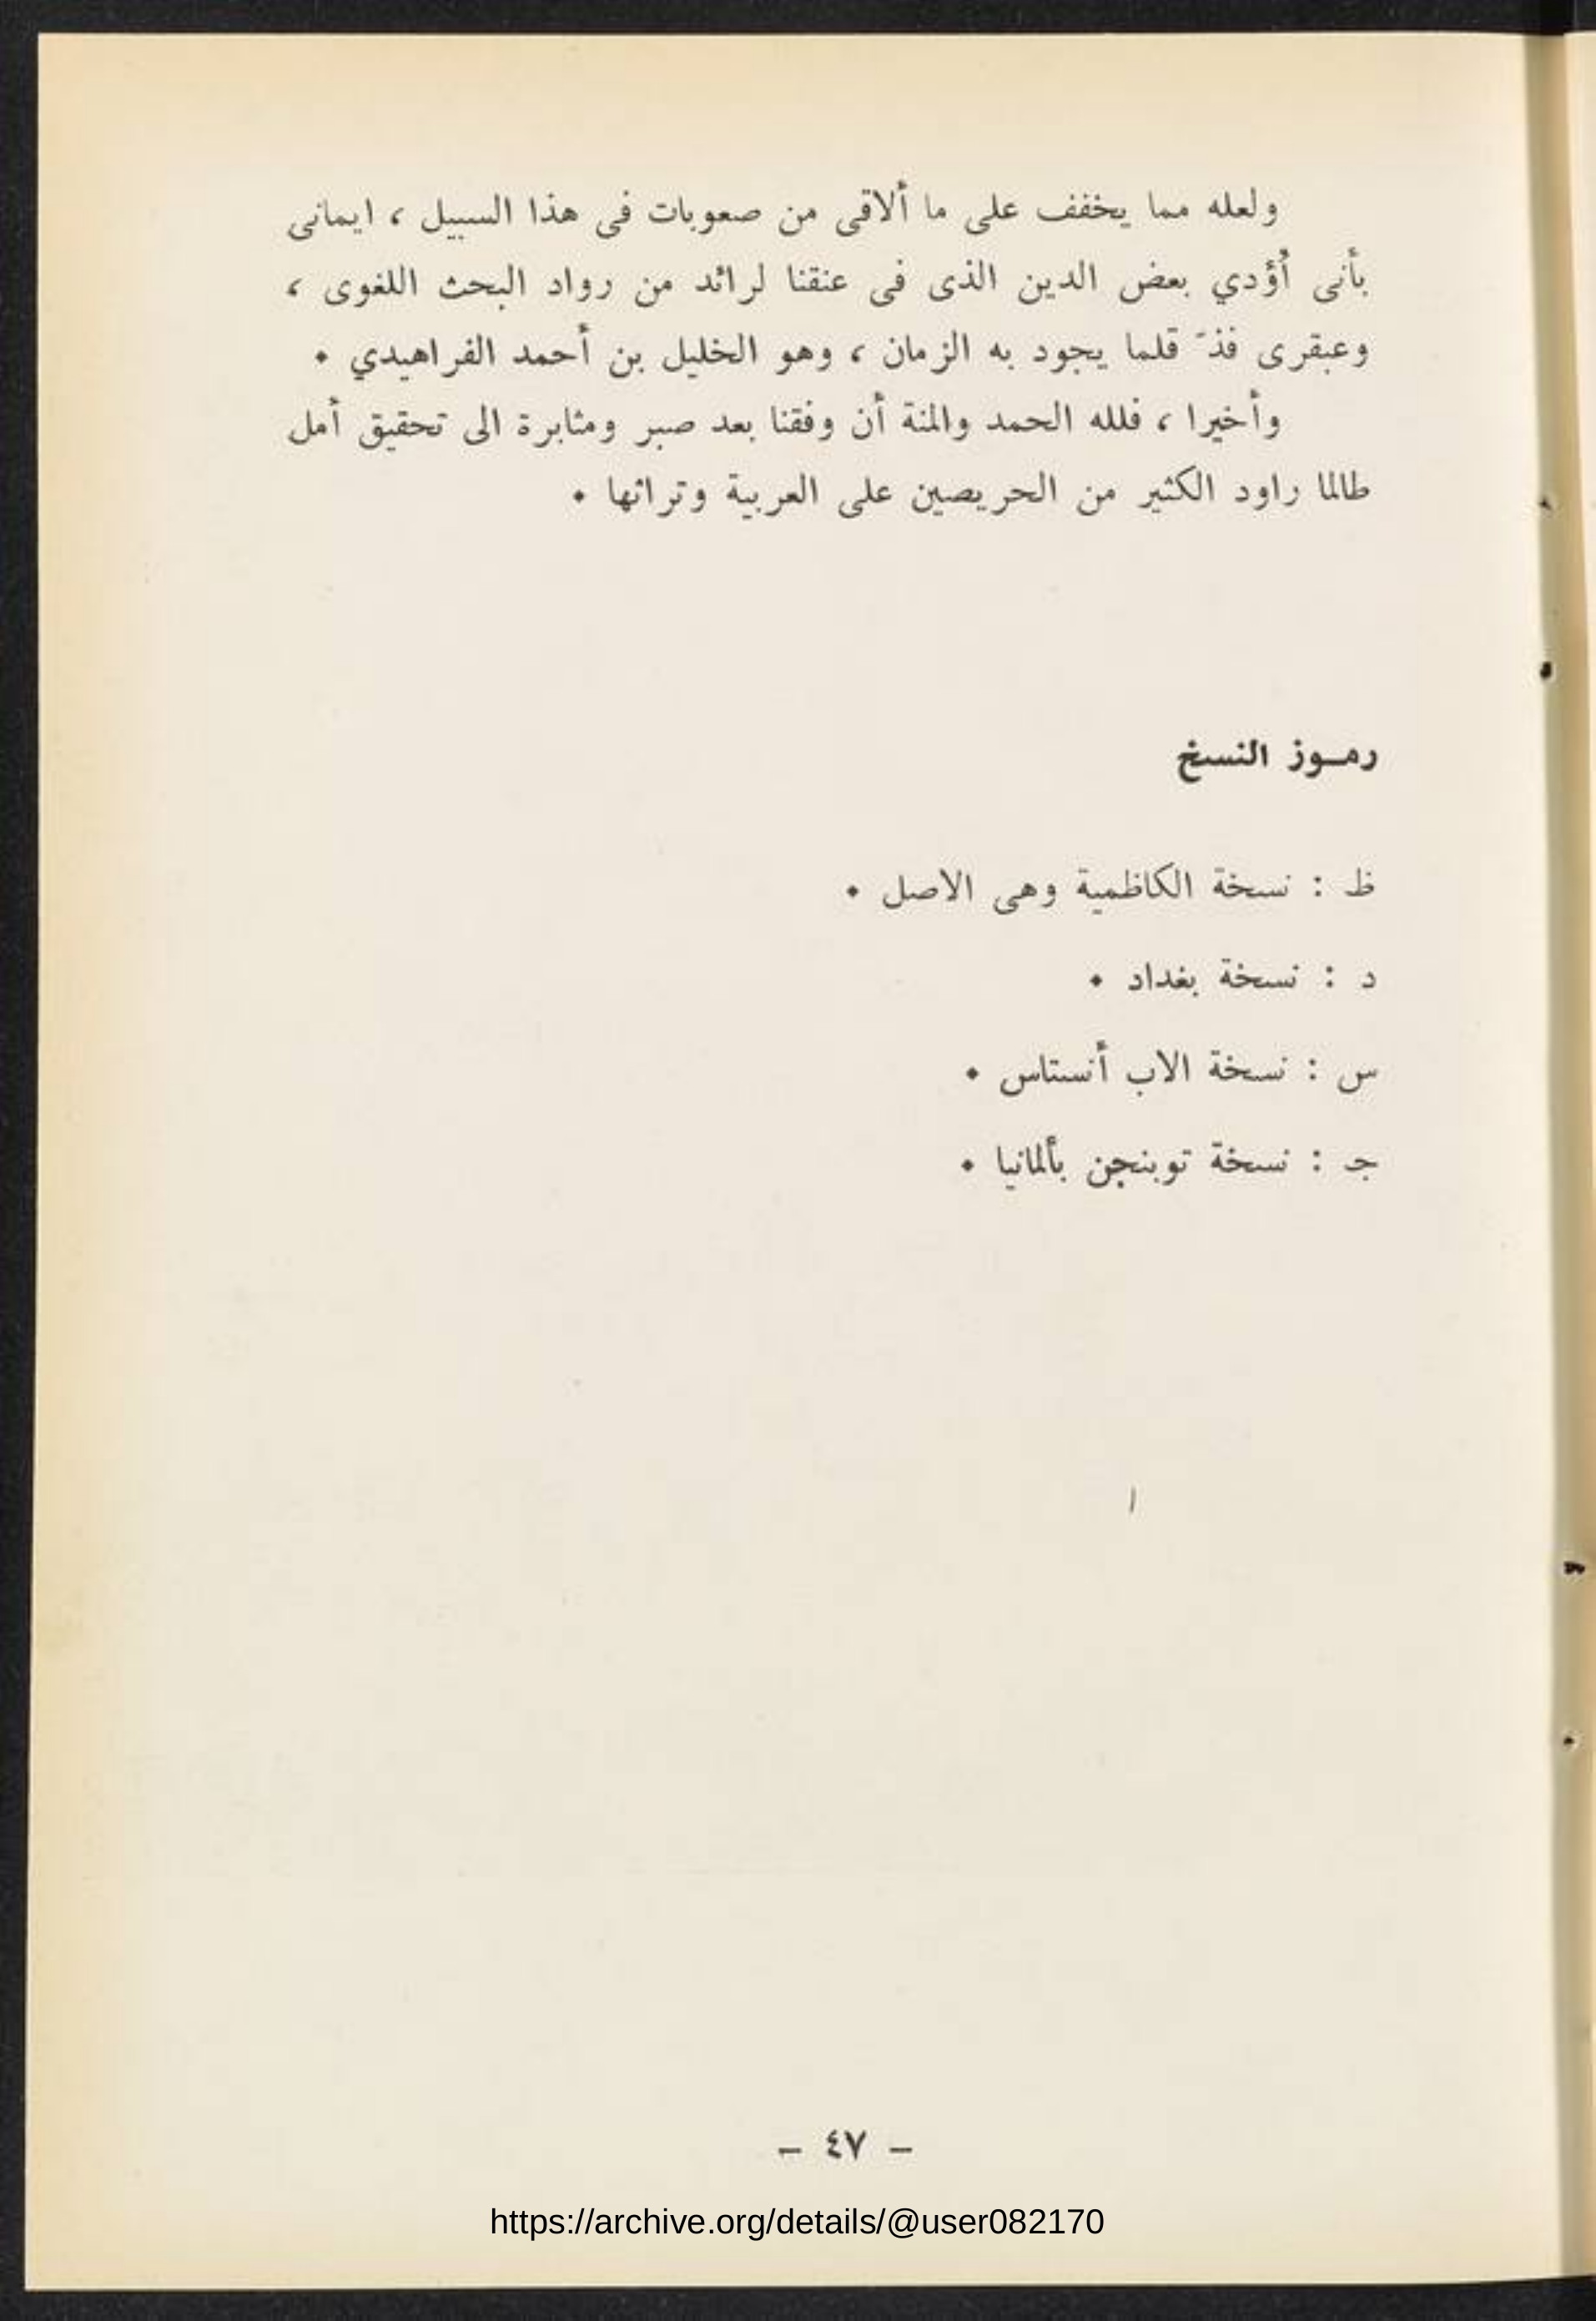 ولعله مما يخفف على ما ألاقى من صعوبات فى هذا السبيل ، ايمانى
بأنى أُؤدي بعض الدين الذى فى عنقنا لرائد من رواد البحث اللغوى ،
وعبقرى فذّ قلما يجود به الزمان ، وهو الخليل بن أحمد الفراهيدي ٠
وأخيرا ، فلله الحمد والمنة أن وفقنا بعد صبر ومثابرة الى تحقيق أمل
طالما راود الكثير من الحريصين على العربية وتراثها ٠
رمـوز النسخ
ظ : نسخة الكاظمية وهى الاصل ٠
د : نسخة بغداد ٠
س : نسخة الاب أنستاس ٠
جـ : نسخة توبنجن بألمانيا ٠
– ٤٧ –
https://archive.org/details/@user082170